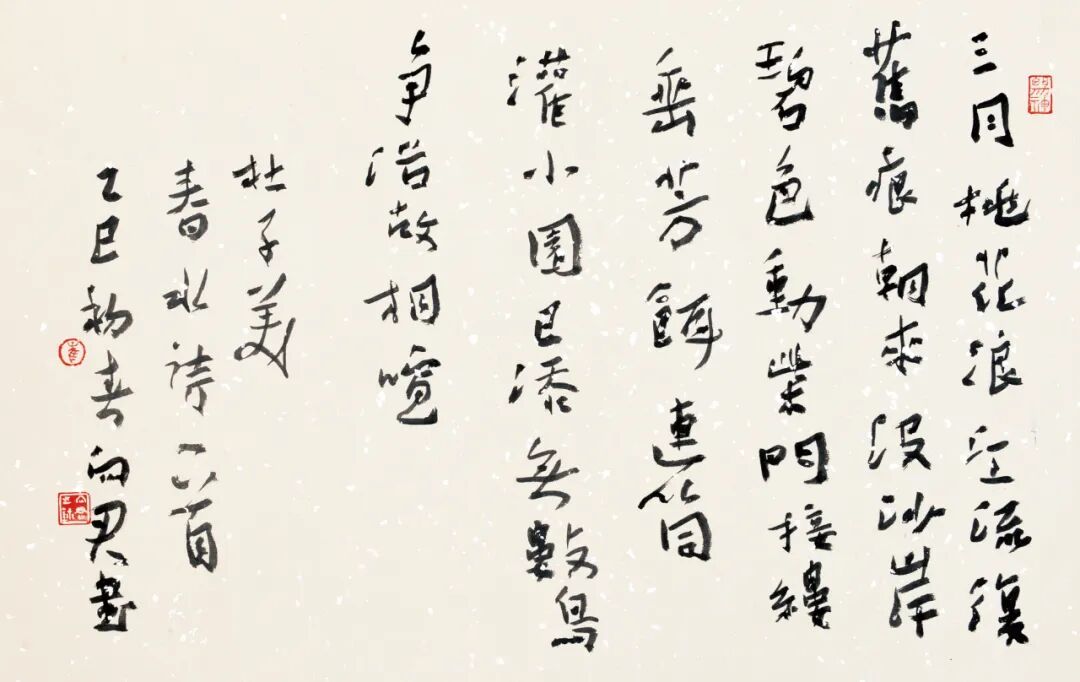 三月桃花浪江流復
舊痕朝來沒沙岸
碧色動柴門接縷
垂芳餌連筒
灌小園已添無數鳥
爭浴故相喧
杜子美
春水詩一首
乙巳初春書